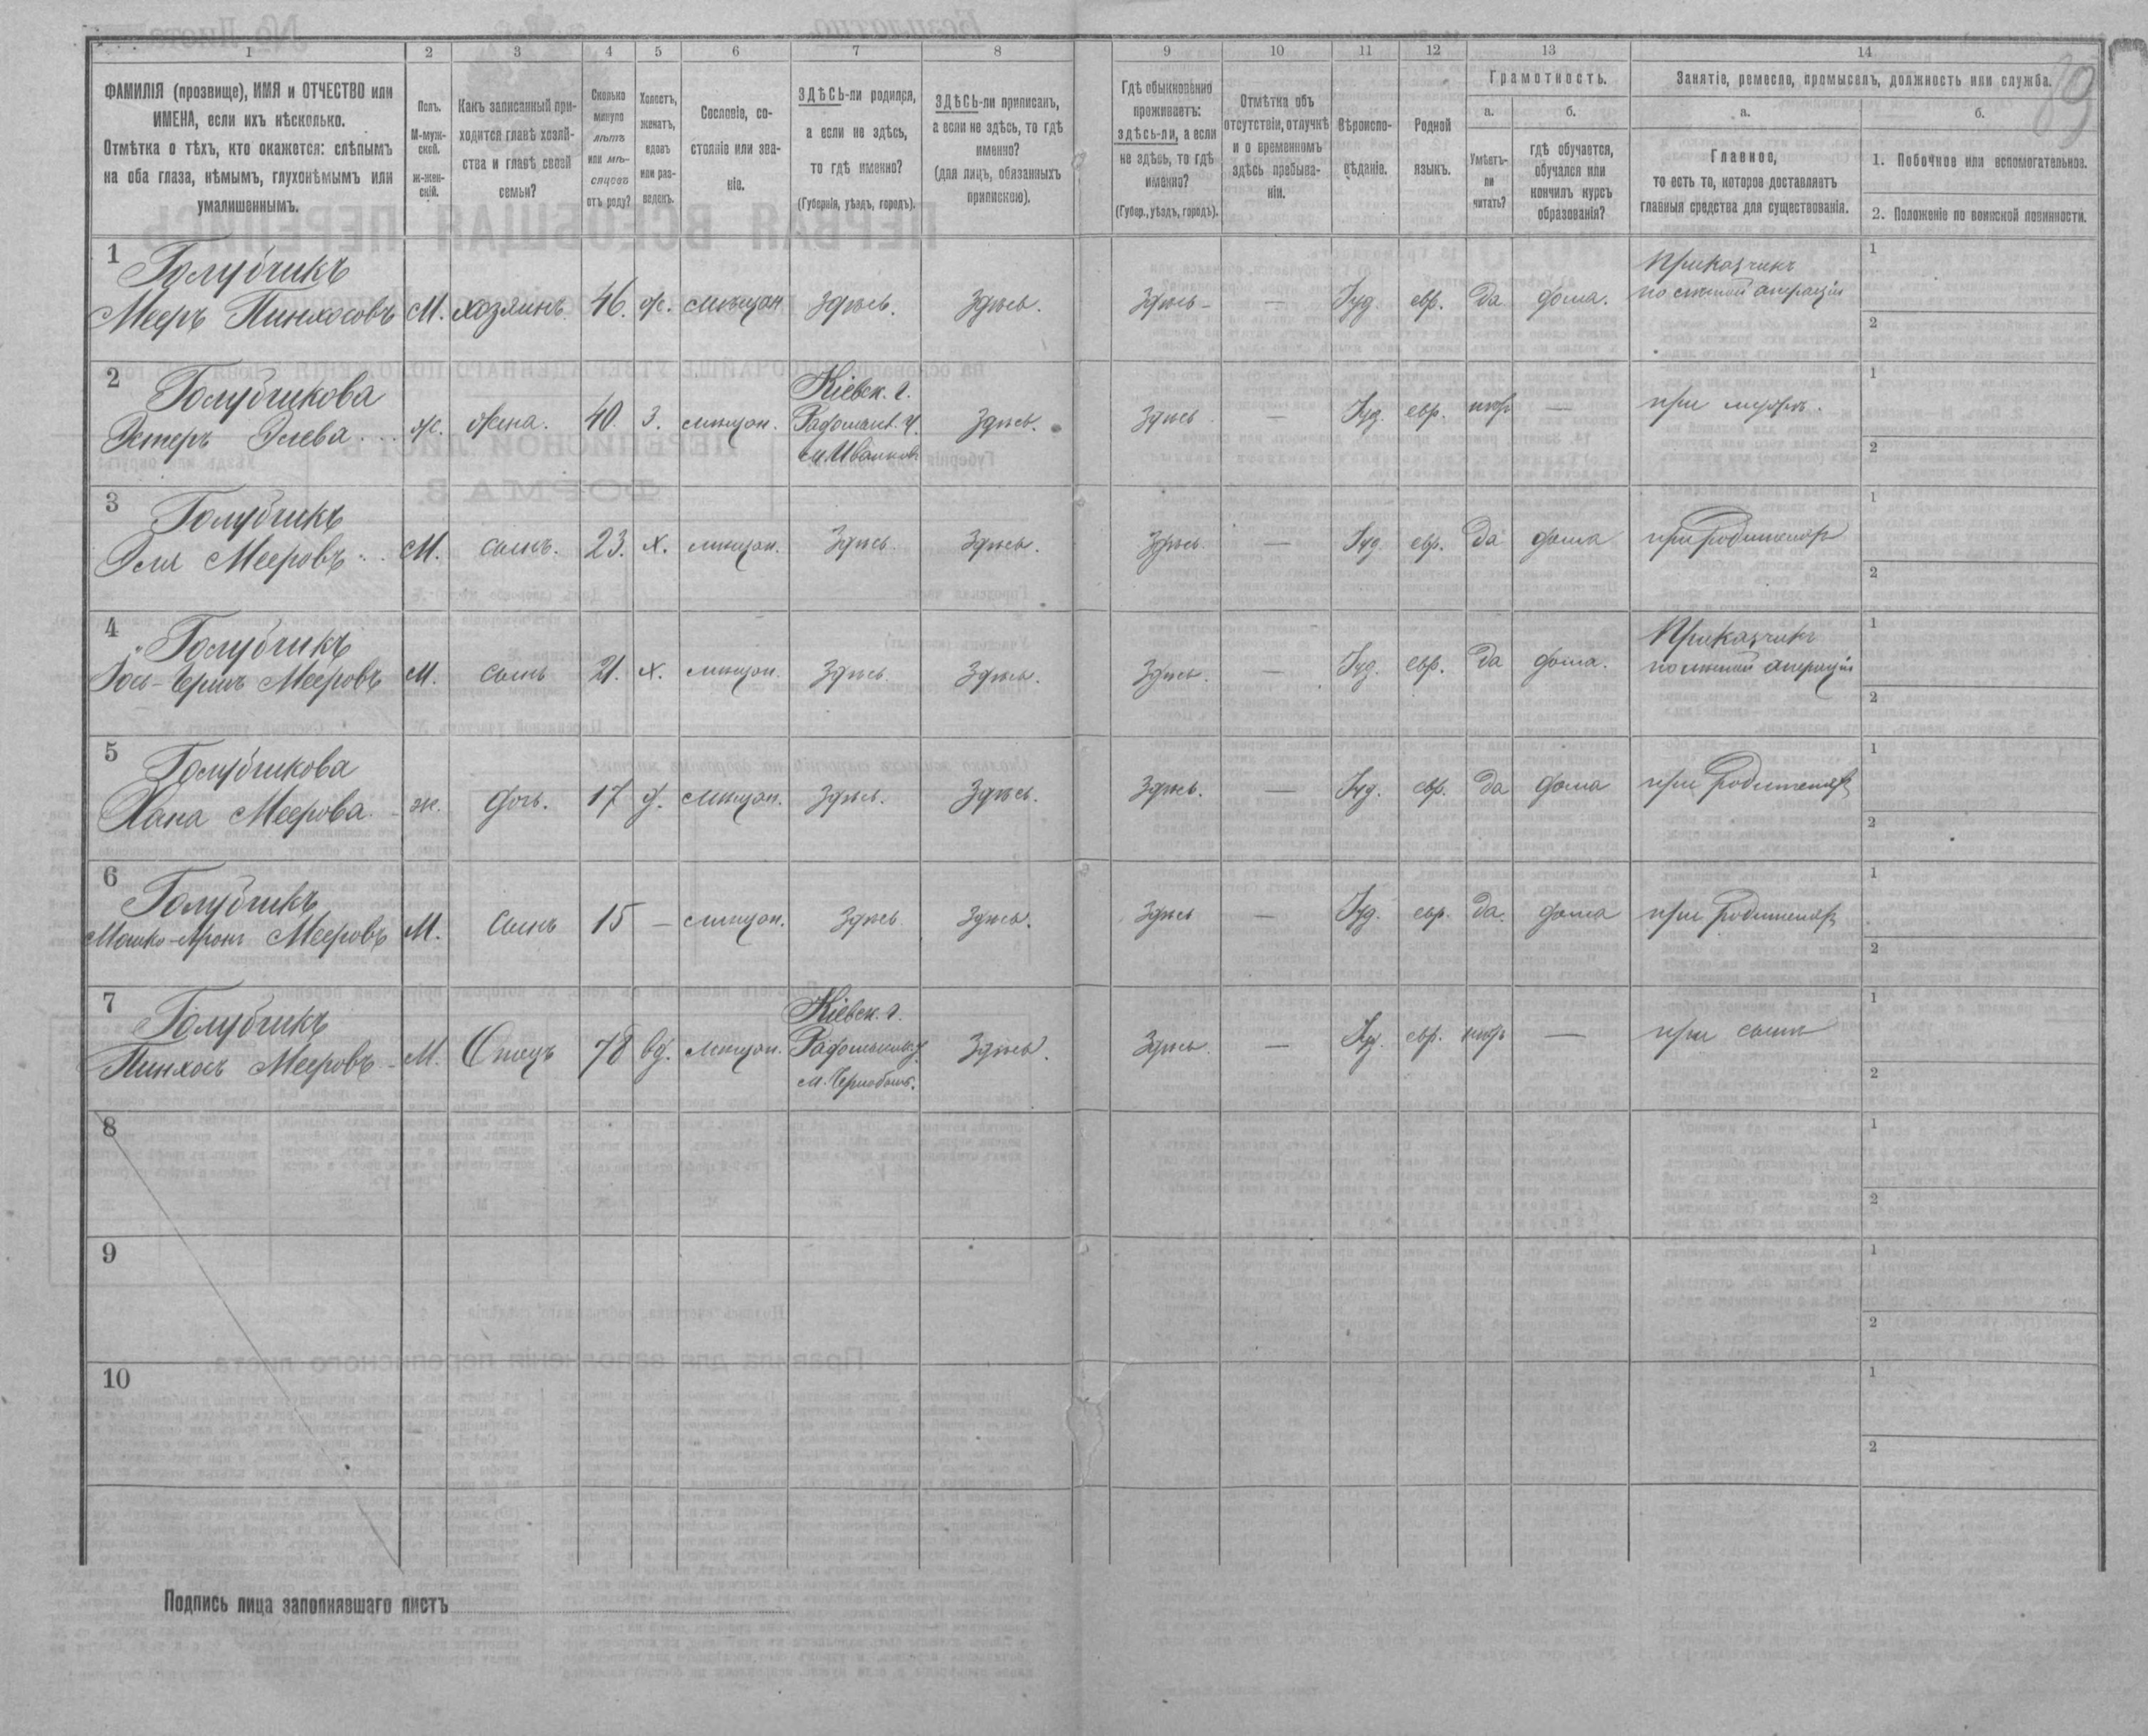 1 2 3 4 5 6 7 8 9 10 11 12 13 14
89
ФАМИЛІЯ (прозвище), ИМЯ и ОТЧЕСТВО или
ИМЕНА, если ихъ нѣсколько.
Отмѣтка о тѣхъ, кто окажется: слѣпымъ
на оба глаза, нѣмымъ, глухонѣмымъ или
умалишеннымъ.
Полъ.
М-муж-
ской.
Ж-жен-
скій.
Какъ записанный при-
ходится главѣ хозяй-
ства и главѣ своей
семьи?
Сколько
минуло
лѣтъ
или мѣ-
сяцевъ
отъ роду?
Холостъ,
женатъ,
вдовъ
или раз-
веденъ.
Сословіе, со-
стояніе или зва-
ніе.
ЗДѢСЬ-ли родился,
а если не здѣсь,
то гдѣ именно?
(Губернія, уѣздъ, городъ).
ЗДѢСЬ-ли приписанъ,
а если не здѣсь, то гдѣ
именно?
(для лицъ, обязанныхъ
припискою).
Гдѣ обыкновенно
проживаетъ:
здѣсь-ли, а если
не здѣсь, то гдѣ
именно?
(Губер., уѣздъ, городъ).
Отмѣтка объ
отсутствіи, отлучкѣ
и о временномъ
здѣсь пребыва-
ніи.
Вѣроиспо-
вѣданіе.
Родной
языкъ.
Грамотность.
а.
Умѣетъ-
ли
читать?
б.
гдѣ обучается,
обучался или
кончилъ курсъ
образованія?
Занятіе, ремесло, промыселъ, должность или служба.
а.
Главное,
то есть то, которое доставляетъ
главныя средства для существованія.
б.
1. Побочное или вспомогательное.
2. Положеніе по воинской повинности.
1 Голубчикъ
Мееръ Пинхосовъ М. хозяинъ 46. ж. мѣщан. Здѣсь. Здѣсь. Здѣсь — Іуд. евр. да дома. Приказчикъ
по лѣсной операціи
1
2
2 Голубчикова
Эстеръ Элева ж. жена. 40. З. мѣщан. Кіевск. г.
Радомысл. у.
м. Иванков
Здѣсь. Здѣсь — Іуд. евр. нѣтъ — при мужѣ.
1
2
3 Голубчикъ
Эля Мееровъ М. сынъ. 23. х. мѣщан. Здѣсь. Здѣсь. Здѣсь. — Іуд. евр. да дома при родителяхъ
1
2
4 Голубчикъ
Мееровъ М. сынъ 21. х. мѣщан. Здѣсь. Здѣсь. Здѣсь. — Іуд. евр. да дома. Приказчикъ
по лѣсной операціи
1
2
5 Голубчикова
Хана Меерова ж. дочь. 17 д. мѣщан. Здѣсь. Здѣсь. Здѣсь. — Іуд. евр. да дома при родителяхъ
1
2
6 Голубчикъ
Мошко-Аронъ Мееровъ М. Сынъ 15 — мѣщан. Здѣсь Здѣсь. Здѣсь — Іуд. евр. да. дома при родителяхъ
1
2
7 Голубчикъ
Пинхосъ Мееровъ М. Отецъ 78 вд. мѣщан. Кіевск. г.
Радомысл. у.
м. Чернобыль.
Здѣсь. Здѣсь. — Іуд. евр. нѣтъ — при сынѣ
1
2
8
1
2
9
1
2
10
1
2
Подпись лица заполнявшаго листъ